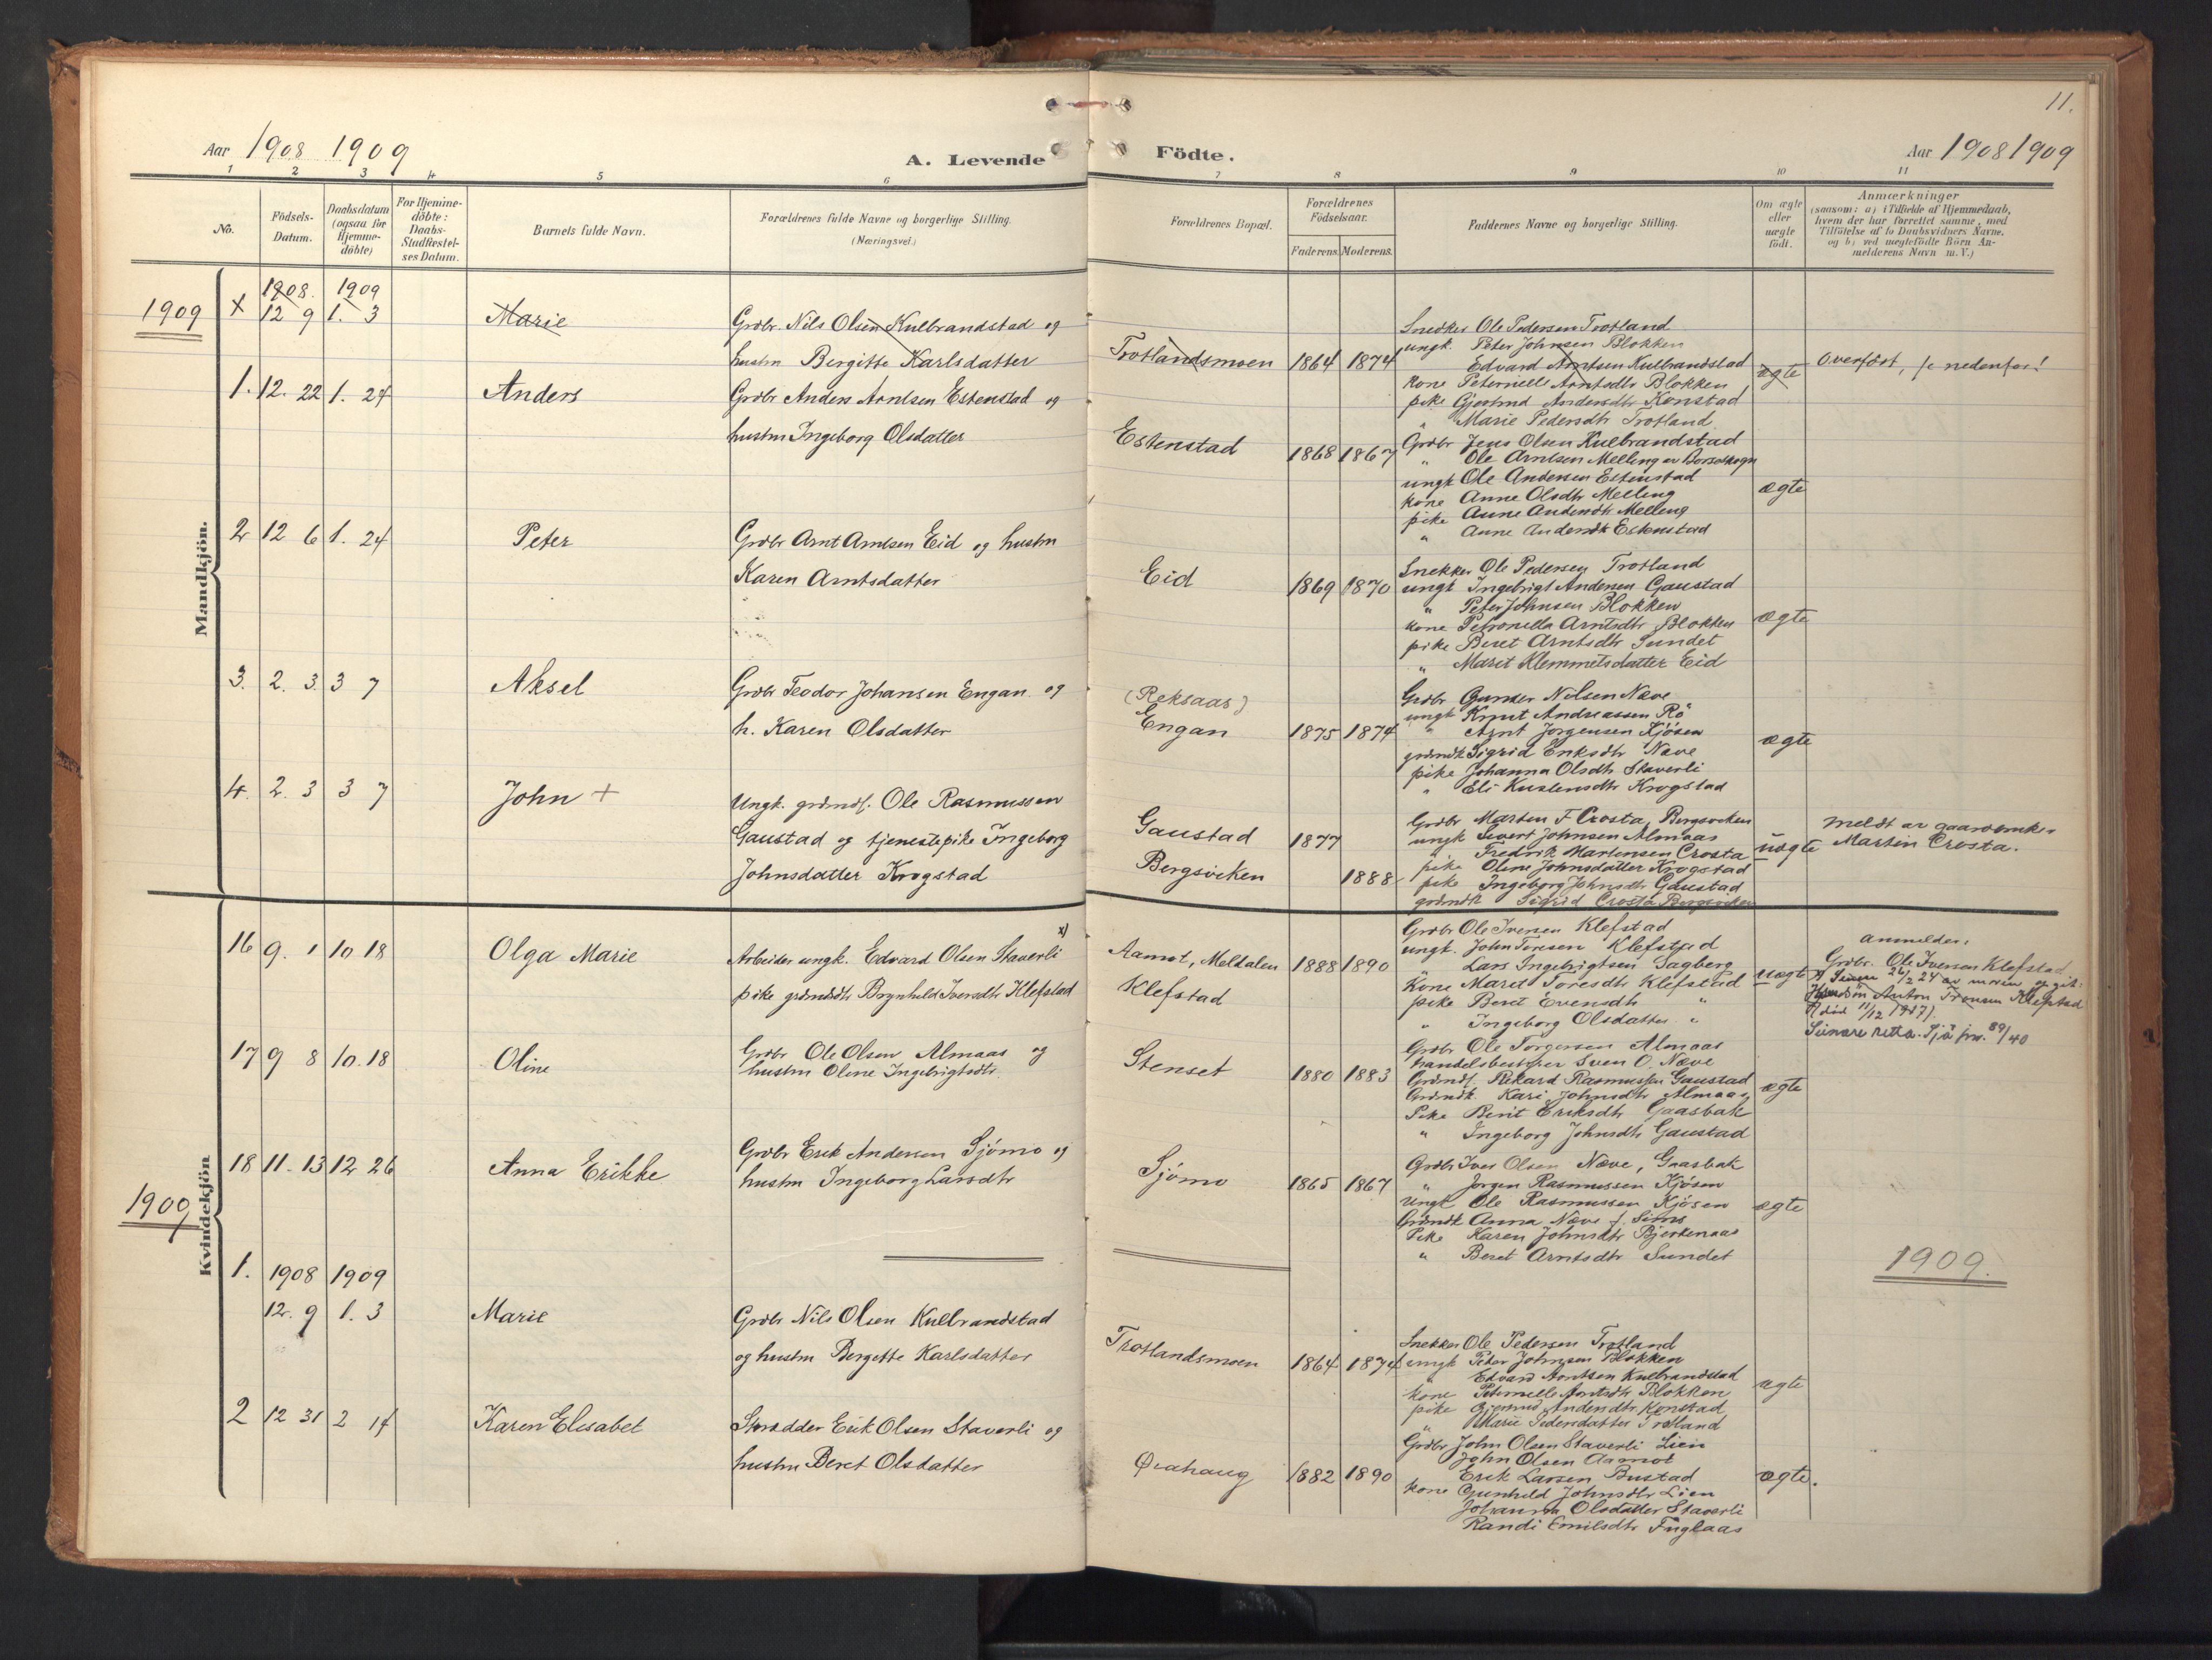 11.
Aar 1908 1909
A. Levende
Födte.
Aar 1908 1909
1 2 3 4 5 6 7 8 9 10 11
No.
Födsels-
Datum.
Daabsdatum
(ogsaa for
Hjemme-
döbte)
For Hjemme-
döbte:
Daabs-
Stadfæstel-
ses Datum.
Barnets fulde Navn.
Forældrenes fulde Navne og borgerlige Stilling.
(Næringsvei.)
Forældrenes Bopæl.
Forældrenes
Födselsaar.
Faderens. Moderens.
Faddernes Navne og borgerlige Stilling.
Om ægte
eller
uægte
födt.
Anmærkninger
(saasom: a) i Tilfælde af Hjemmedaab,
hvem der har forrettet samme, med
Tilföielse af to Daabsvidners Navne,
og b) ved uægtefödte Börn An-
melderens Navn m. V.)
Mandkjön.
1909
1908. 1909
X 12 9 1. 3 Marie
Grdbr. Nils Olsen Kulbrandstad og
hustru Bergitte Karlsdatter
Trotlandsmoen 1864 1874
Snedker Ole Pedersen Trotland
ungk. Peter Johnsen Blokken
Edvard Arntsen Kulbrandstad
kone Peternelle Arntsdtr Blokken
pike Gjertrud Andersdtr Konstad
" Marie Pedersdtr Trotland
ægte
Overført, se nedenfor!
1. 12. 22 1. 24 Anders
Grdbr Anders Arntsen Estenstad og
hustru Ingeborg Olsdatter
Estenstad 1868 1867
Grdbr Jens Olsen Kulbrandstad
" Ole Arntsen Melling av Børseskogn
ungk Ole Andersen Estenstad
kone Anne Olsdtr Melling
pike Anne Andersdtr Melling
" Anne Andersdtr Estenstad
ægte
2 12 6 1. 24 Peter
Grdbr Arnt Arntsen Eid og hustru
Karen Arntsdatter
Eid 1869 1870
Snekker Ole Pedersen Trotland
ungk Ingebrigt Andersen Gaustad
" Peter Johnsen Blokken
kone Petronella Arntsdtr Blokken
pike Beret Arntsdtr Sundet
" Marit Klemmetsdatter Eid
ægte
3. 2. 3. 3 7 Aksel
Grdbr Teodor Johansen Engan og
h. Karen Olsdatter
(Reksaas)
Engan 1875 1874
Grdbr Gunder Nilsen Næve
ungk Knut Andreassen Rö
" Arnt Jörgensen Kjösen
grdmdk Sigrid Eriksdtr Næve
pike Johanna Olsdtr Staverli
" Eli Krogstad
ægte
4. 2. 3 3 7 John +
Ungk. grdmds. Ole Rasmussen
Gaustad og tjenestepike Ingeborg
Johnsdatter Krogstad
Gaustad 1877
Bergsviken 1888
Grdbr Martin F Crosta, Bergsviken
ungk Sivert Johnsen Almaas
" Fredrik Martensen Crosta
pike Oline Johnsdatter Krogstad
pike Ingeborg Johnsdtr Gaustad
grdmdk Sigrid Crosta Bergsviken
uægte
Meldt av gaardbruker
Martin Crosta.
Kvindekjön
16 9. 1 10 18 Olga Marie
x)
Arbeider ungk. Edvard Olsen Staverli
pike grdmdsdtr Brynhild Iversdtr Klefstad
Aamot, Meldalen 1888 1890
Klefstad
Grdbr Ole Iversen Klefstad
ungk. John Toresen Klefstad
" Lars Ingebrigtsen Sagberg
Kone Maret Toresdtr Klefstad
pike Beret Evensdtr "
" Ingeborg Olsdatter "
uægte
Anmelder:
Grdbr. Ole Iversen Klefstad
26/2 24 av moren
Anton Iversen Klefstad
död 11/12 1917).
Seinare retta. Sjå jnr. 89/40
17 9 8 10. 18 Oline
Grdbr Ole Olsen Almaas og
hustru Oline Ingebrigtsdtr.
Stenset 1880 1883
Grdbr Ole Torgersen Almaas
handelsbestyrer Sven O. Næve
Grdmds. Rikard Rasmussen Gaustad
Grdmdk. Kari Johnsdtr Almaas
Pike Berit Eriksdtr Gaasbak
" Ingeborg Johnsdtr Gaustad
ægte
18 11. 13 12 26 Anna Erikke
Grdbr Erik Andersen Sjømo og
hustru Ingeborg Larsdtr
Sjømo 1865 1867
Grdbr Iver Olsen Næve, Gaasbak
" Jørgen Rasmussen Kjösen
Ungk Ole Rasmussen Kjösen
Grdmdk Anna Næve f. Sims
Pike Karen Johnsdtr Bjerkenaas
" Beret Arntsdtr Sundet
ægte
1909
1909.
1. 1908 1909
12. 9 1. 3 Marie
Grdbr Nils Olsen Kulbrandstad
og hustru Bergitte Karlsdatter
Trotlandsmoen 1864 1874
Snekker Ole Pedersen Trotland
ungk Peter Johnsen Blokken
" Edvard Arntsen Kulbrandstad
kone Peternelle Arntsdtr Blokken
pike Gjertrud Andersdtr Konstad
" Marie Pedersdatter Trotland
ægte
2 12 31 2 14 Karen Elisabet
Skrædder Erik Olsen Staverli og
hustru Beret Olsdatter
Ørahaug 1882 1890
Grdbr John Olsen Staverli Lien
John Olsen Aamot
Erik Larsen Bustad
kone Gunhild Johnsdtr Lien
Johanna Olsdatter Staverli
Randi Emilsdtr Fuglaas
ægte.